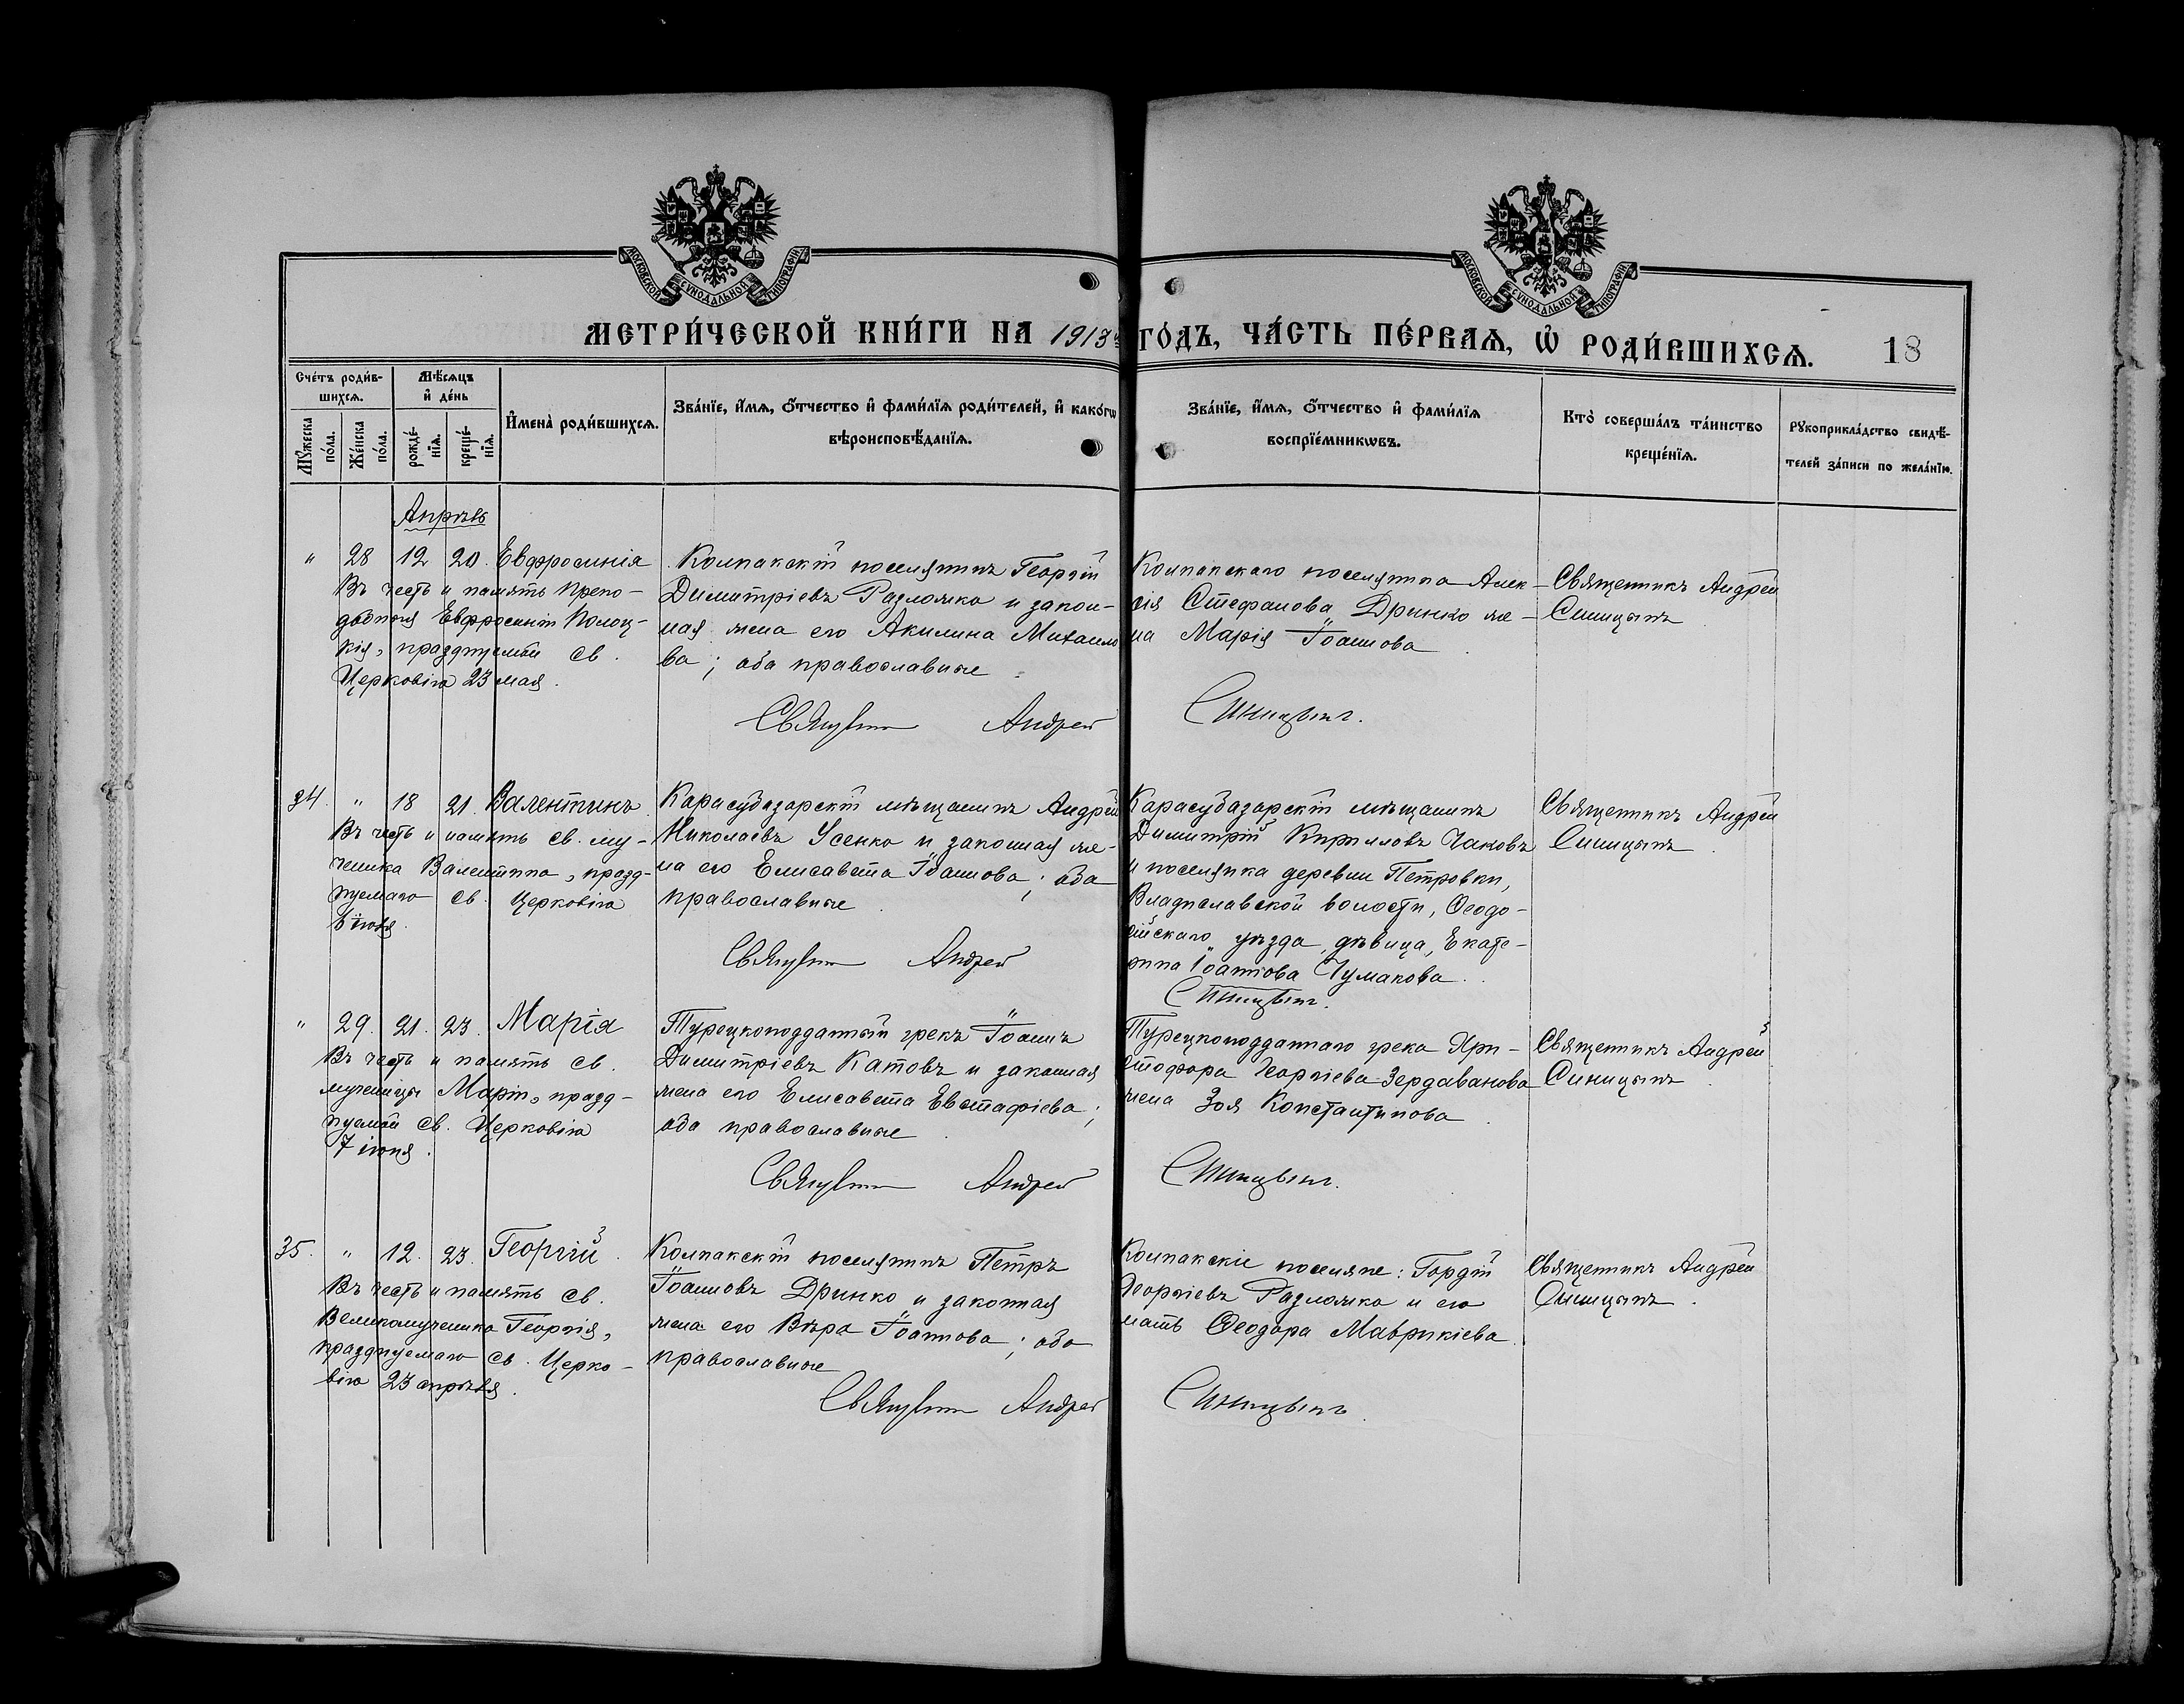 МОСКОВСКОЙ СѴНОДАЛЬНОЙ ТИПОГРАФІИ
МОСКОВСКОЙ СѴНОДАЛЬНОЙ ТИПОГРАФІИ
МЕТРИ́ЧЕСКОЙ КНИ́ГИ НА 1913й ГО́ДЪ, ЧА́СТЬ ПЕ́РВАѦ, Ѡ҆ РОДИ́ВШИХСѦ. 18
Сче́тъ роди́в-
шихсѧ.
Мꙋ́жеска по́ла.
Же́нска по́ла.
Мѣ́сѧцъ
и҆ де́нь
рожде́-
нїѧ.
креще́-
нїѧ.
И҆мена̀ роди́вшихсѧ.
Зва́нїе, и҆́мѧ, ѻ҆́тчество и҆ фами́лїѧ роди́телей, и҆ како́гѡ
вѣроисповѣ́данїѧ.
Зва́нїе, и҆́мѧ, ѻ҆́тчество и҆ фами́лїѧ
воспрїе́мникѡвъ.
Кто̀ соверша́лъ та́инство
креще́нїѧ.
Рꙋкоприкла́дство свидѣ́-
телей за́писи по жела́нїю.
Апрѣль
" 28 12 20. Евфросинія
Въ честь и память препо-
добныя Евфросиніи Полоц-
кія, празднуемой св.
Церковію 23 мая.
Колпакскій поселянинъ Георгій
Димитріевъ Разложко и закон-
ная жена его Акилина Михаило
ва; оба православные
Колпакскаго поселянина Алек-
сія Стефанова Дринко же-
на Марія Іоаннова
Священникъ Андрей
Синицынъ
Священникъ Андрей Синицынъ.
34. " 18 21. Валентинъ
Въ честь и память св. му-
ченика Валентина, празд-
нуемаго св. Церковію
іюля.
Карасубазарскій мѣщанинъ Андрей
Николаевъ Усенко и законная же-
на его Елисавета Іоаннова; оба
православные
Карасубазарскій мѣщанинъ
Димитрій Кирилловъ Чаковъ
и поселянка деревни Петровки,
Владиславской волости, Ѳеодо-
сійскаго уѣзда, дѣвица, Екате-
рина Іоаннова Чумакова.
Священникъ Андрей
Синицынъ.
Священникъ Андрей
Синицынъ.
" 29. 21. 23. Марія
Въ честь и память св.
мученицы Маріи, празд-
нуемой св. Церковію
7 іюня.
Турецкоподданный грекъ Іоаннъ
Димитріевъ Катовъ и законная
жена его Елисавета Евстафіева;
оба православные
Турецкоподданнаго грека Хри-
стофора Георгіева Зердаванова
жена Зоя Константинова
Священникъ Андрей
Синицынъ.
Священникъ Андрей Синицынъ.
35. " 12. 23. Георгій.
Въ честь и память св.
Великомученика Георгія,
празднуемаго св. Церко-
вію 23 апрѣля.
Колпакскій поселянинъ Петръ
Іоанновъ Дринко и законная
жена его Вѣра Іоаннова; оба
православные
Колпакскіе поселяне: Гордій
Георгіевъ Разложко и его
мать Ѳеодора Маврикіева.
Священникъ Андрей
Синицынъ.
Священникъ Андрей Синицынъ.